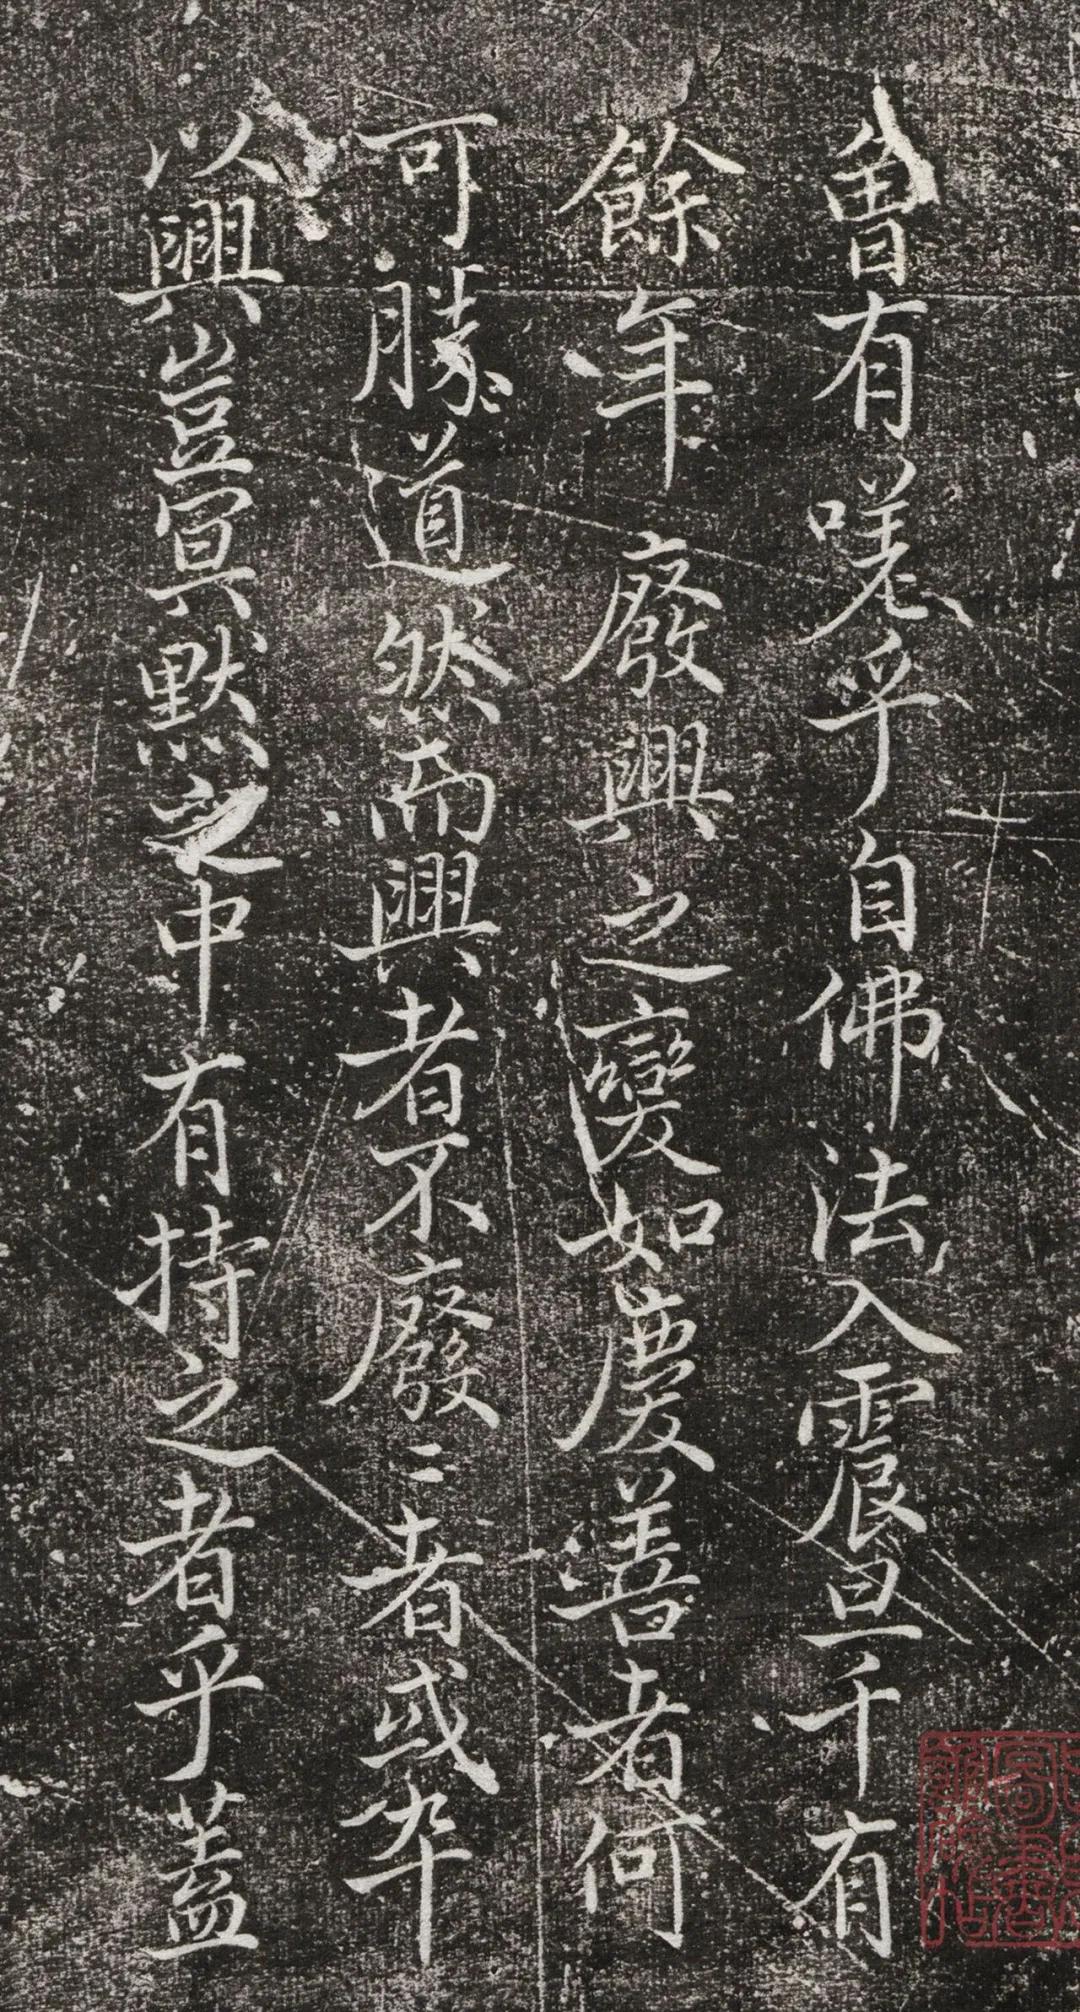 曾有嗟乎自佛法入震旦千有
餘年廢興之變如慶善者何
可勝道然而興者不廢廢者或卒
以興豈冥默之中有持之者乎蓋